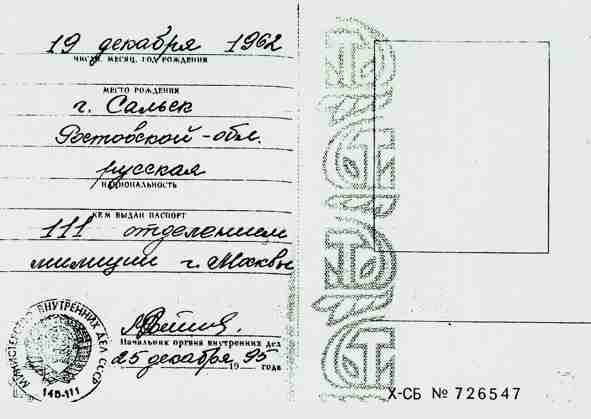 19 декабря 1962
ЧИСЛО, МЕСЯЦ, ГОД РОЖДЕНИЯ
МЕСТО РОЖДЕНИЯ
г. Сальск
Ростовской обл.
русская
НАЦИОНАЛЬНОСТЬ
КЕМ ВЫДАН ПАСПОРТ
111 отделением
милиции г. Москвы
Начальник органа внутренних дел
25 декабря 95
19 — года
МИНИСТЕРСТВО ВНУТРЕННИХ ДЕЛ СССР
140-111
X-СБ № 726547